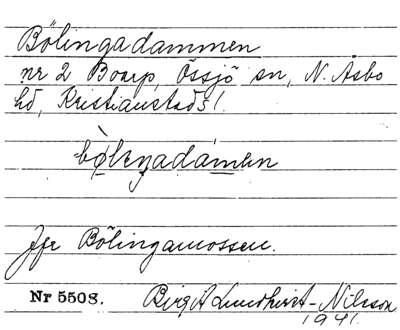 Bölingadammen
nr 2 Boarp, Össjö sn, N. Åsbo
hd, Kristianstads l.
bø̀lɩŋadámən
Jfr Bölingamossen.
Nr 5508. Birgit Lundkvist-Nilsson
1941.